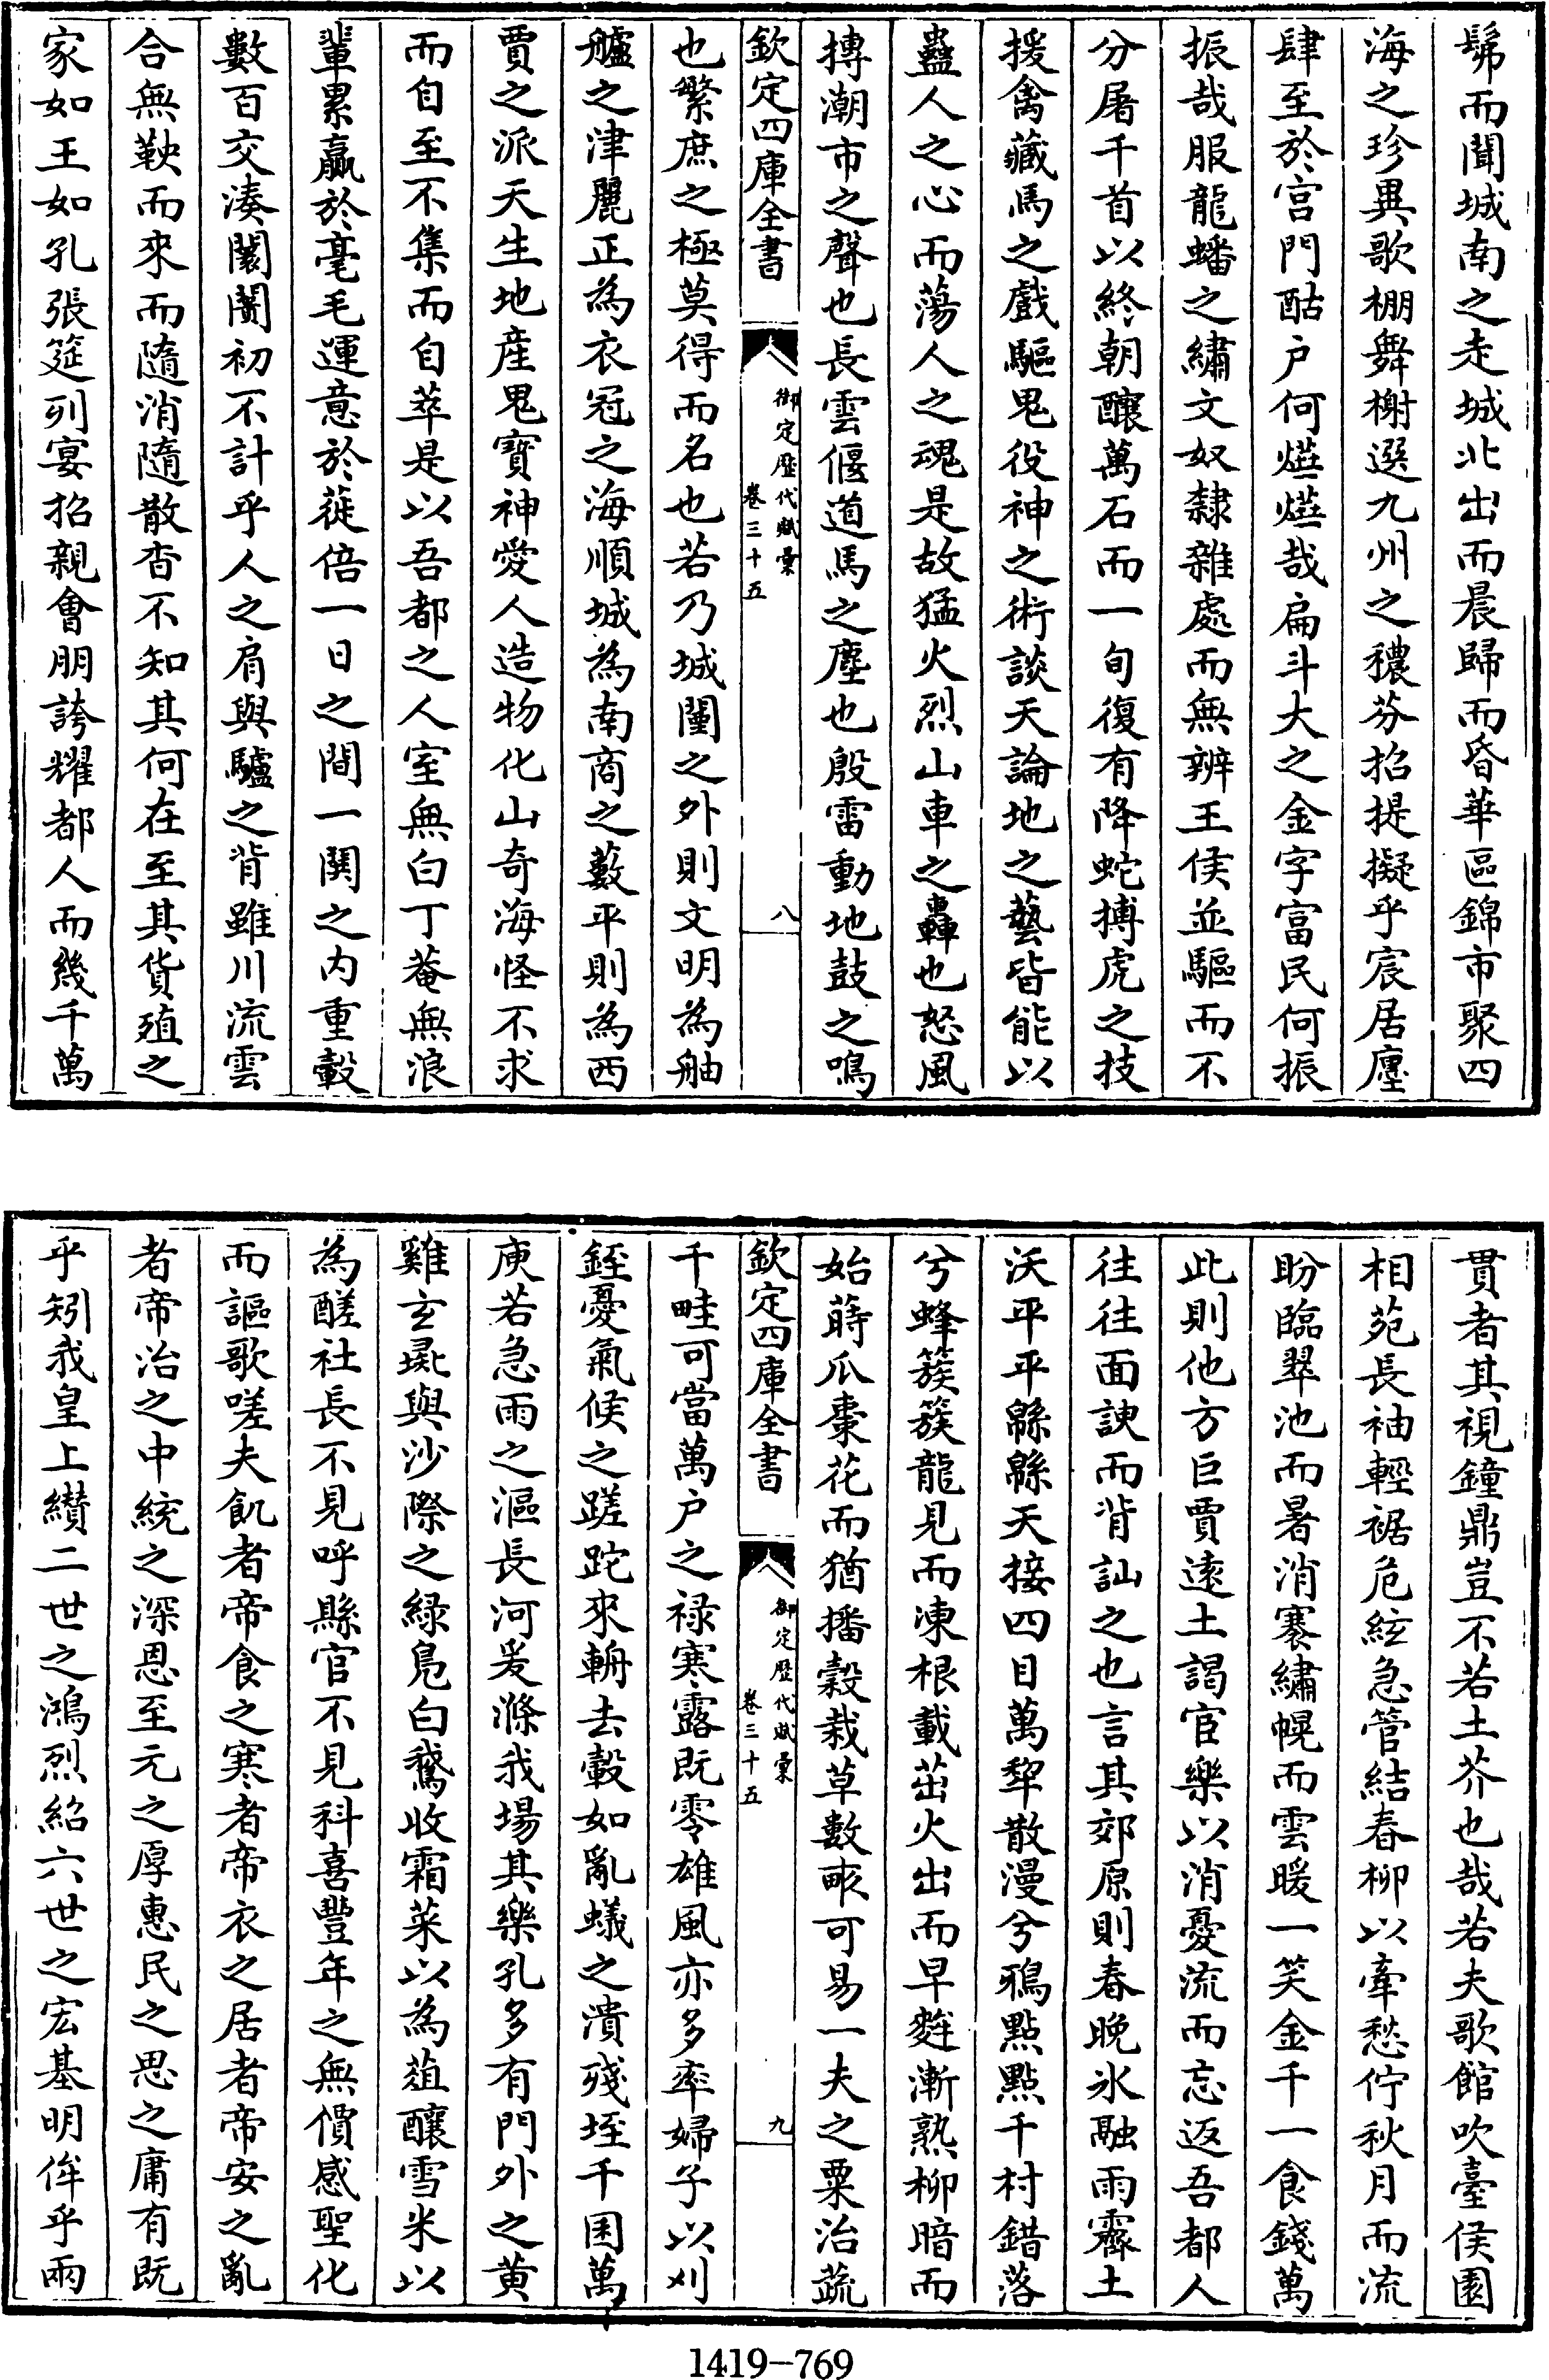 髴而聞城南之走城北出而晨歸而昏華區錦市聚四
海之珍異歌棚舞榭選九州之穠芬招提擬乎宸居廛
肆至於宫門酤户何煜煜哉扁斗大之金字富民何振
振哉服龍蟠之繡文奴隸雜處而無辨王侯並驅而不
分屠千首以終朝釀萬石而一旬復有降蛇搏虎之技
援禽藏馬之戲驅鬼役神之術談天論地之藝皆能以
蠱人之心而蕩人之魂是故猛火烈山車之轟也怒風
搏潮市之聲也長雲偃道馬之塵也殷雷動地鼓之鳴
欽定四庫全書
御定歷代賦彙
卷三十五
八
也繁庶之極莫得而名也若乃城闉之外則文明為舳
艫之津麗正為衣冠之海順城為南商之藪平則為西
賈之派天生地産鬼寶神愛人造物化山奇海怪不求
而自至不集而自萃是以吾都之人室無白丁菴無浪
輩累贏於毫毛運意於蓰倍一日之間一闠之内重轂
數百交湊闤闠初不計乎人之肩與驢之背雖川流雲
合無鞅而來而隨消隨散杳不知其何在至其貨殖之
家如王如孔張筵列宴招親會朋誇耀都人而幾千萬
貫者其視鐘鼎豈不若土芥也哉若夫歌館吹臺侯園
相苑長袖輕裾危絃急管結春柳以牽愁佇秋月而流
盼臨翠池而暑消褰繡幌而雲暖一笑金千一食錢萬
此則他方巨賈遠土謁宦樂以消憂流而忘返吾都人
往往面諛而背訕之也言其郊原則春晚氷融雨霽土
沃平平綿綿天接四目萬犂散漫兮鴉點點千村錯落
兮蜂簇簇龍見而凍根載茁火出而早麰漸熟柳暗而
始蒔瓜棗花而猶播穀栽草數畝可易一夫之粟治蔬
欽定四庫全書
御定歷代賦彙
卷三十五
九
千畦可當萬户之禄寒露既零雄風亦多率婦子以刈
銍憂氣候之蹉跎來輈去轂如亂蟻之潰殘垤千囷萬
庾若急雨之漚長河爰滌我場其樂孔多有門外之黄
雞玄彘與沙際之緑鳬白鵞收霜菜以為葅釀雪米以
為醝社長不見呼縣官不見科喜豐年之無價感聖化
而謳歌嗟夫飢者帝食之寒者帝衣之居者帝安之亂
者帝治之中統之深恩至元之厚惠民之思之庸有既
乎矧我皇上纘二世之鴻烈紹六世之宏基明侔乎兩
1419-769